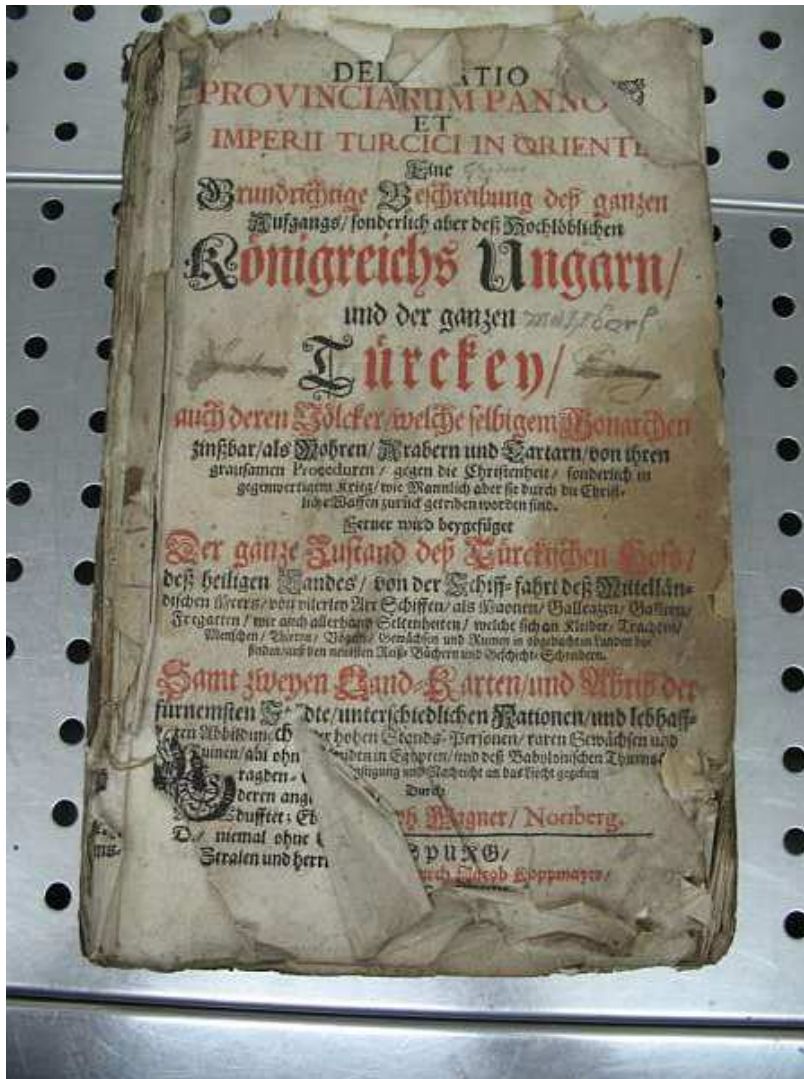 DEL ATIO
PROVINCIARUM PANNO
ET
IMPERII TURCICI IN ORIENTE
Eine
Grundrichtige Beschreibung deß ganzen
Aufgangs/ sonderlich aber deß Hochlöblichen
Königreichs Ungarn/
und der ganzen
Türckey/
auch deren Völcker/welche selbigem Monarchen
zinßbar/als Mohren/ Arabern und Tartarn/von ihren
grausamen Proceduren/ gegen die Christenheit/ sonderlich in
gegenwertigem Krieg/ wie Mannlich aber sie durch die Christ-
liche Waffen zurück getriben worden sind.
Ferner wird beygefüget
Der ganze Zustand deß Türckischen Hofs/
deß heiligen Landes/ von der Schiff-fahrt deß Mittellän-
dischen Meers/ von vilerley Art Schiffen/ als Maonen/ Galleazen/ Galleren/
Fregatten/ wie auch allerhand Seltenheiten/ welche sich an Kleider/ Trachten/
Menschen/ Thieren/ Vögeln/ Gewächsen und Ruinen in obgedachten Landen
finden/auß den neuisten Reiß-Büchern und Geschicht-Schreibern.
Samt zweyen Land-Karten/und Abriß der
fürnemsten dte/unterschiedlichen Nationen/und lebhaff-
ten Abbildung der hohen Stands-Personen/ raren Gewächsen und
uinen/ in Egypten/ und deß Babylonischen Thurns
und Nachricht an das Liecht gegeben
Durch
Wagner/ Noriberg.
niemal ohne
Stralen und herr
SPURG/
durch Jacob Koppmayer/